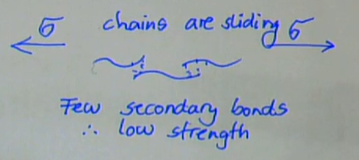 σ chains are sliding σ
Few secondary bonds
∴ low strength